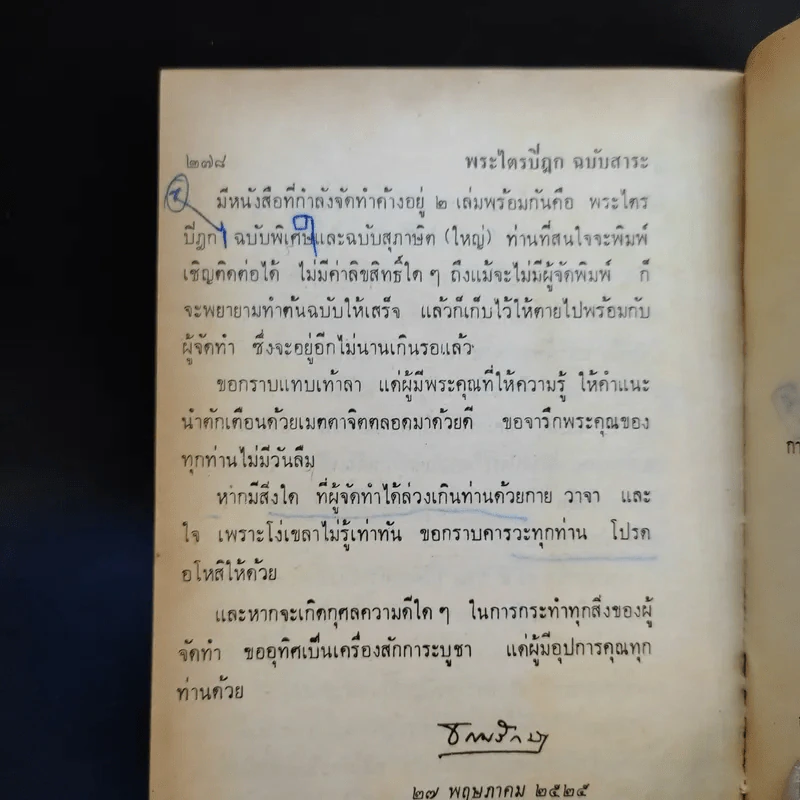 ๒๗๘ พระไตรปิฎก ฉบับสาระ
มีหนังสือที่กำลังจัดทำค้างอยู่ ๒ เล่มพร้อมกันคือ พระไตร
ปิฎก ฉบับพิเศษและฉบับสุภาษิต (ใหญ่) ท่านที่สนใจจะพิมพ์
เชิญติดต่อได้ ไม่มีค่าลิขสิทธิ์ใด ๆ ถึงแม้จะไม่มีผู้จัดพิมพ์ ก็
จะพยายามทำต้นฉบับให้เสร็จ แล้วก็เก็บไว้ให้ตายไปพร้อมกับ
ผู้จัดทำ ซึ่งจะอยู่อีกไม่นานเกินรอแล้ว
ขอกราบแทบเท้าลา แด่ผู้มีพระคุณที่ให้ความรู้ ให้คำแนะ
นำตักเตือนด้วยเมตตาจิตตลอดมาด้วยดี ขอจารึกพระคุณของ
ทุกท่านไม่มีวันลืม
หากมีสิ่งใด ที่ผู้จัดทำได้ล่วงเกินท่านด้วยกาย วาจา และ
ใจ เพราะโง่เขลาไม่รู้เท่าทัน ขอกราบคารวะทุกท่าน โปรด
อโหสิให้ด้วย
และหากจะเกิดกุศลความดีใด ๆ ในการกระทำทุกสิ่งของผู้
จัดทำ ขออุทิศเป็นเครื่องสักการะบูชา แด่ผู้มีอุปการคุณทุก
ท่านด้วย
๒๗ พฤษภาคม ๒๕๒๕